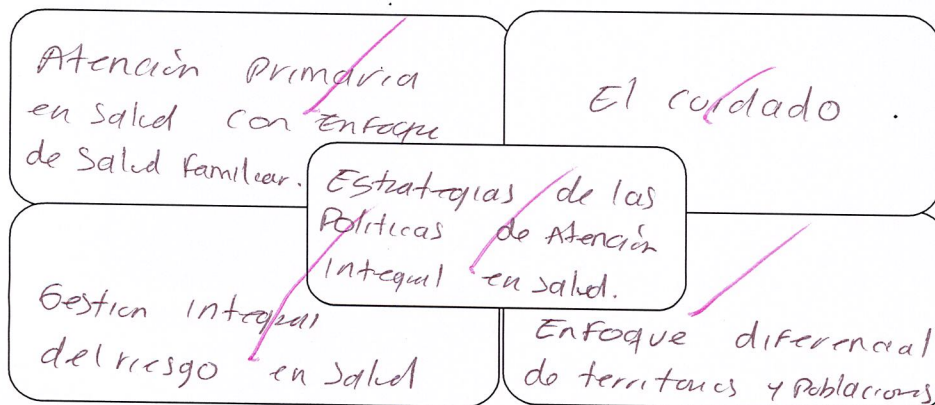 Atención primaria
en salud con Enfoque
de Salud Familiar.
El cuidado.
Estrategias de las
Políticas de Atención
Integral en salud.
Gestion integral
del riesgo en Salud
Enfoque diferencial
de territorios y Poblaciones